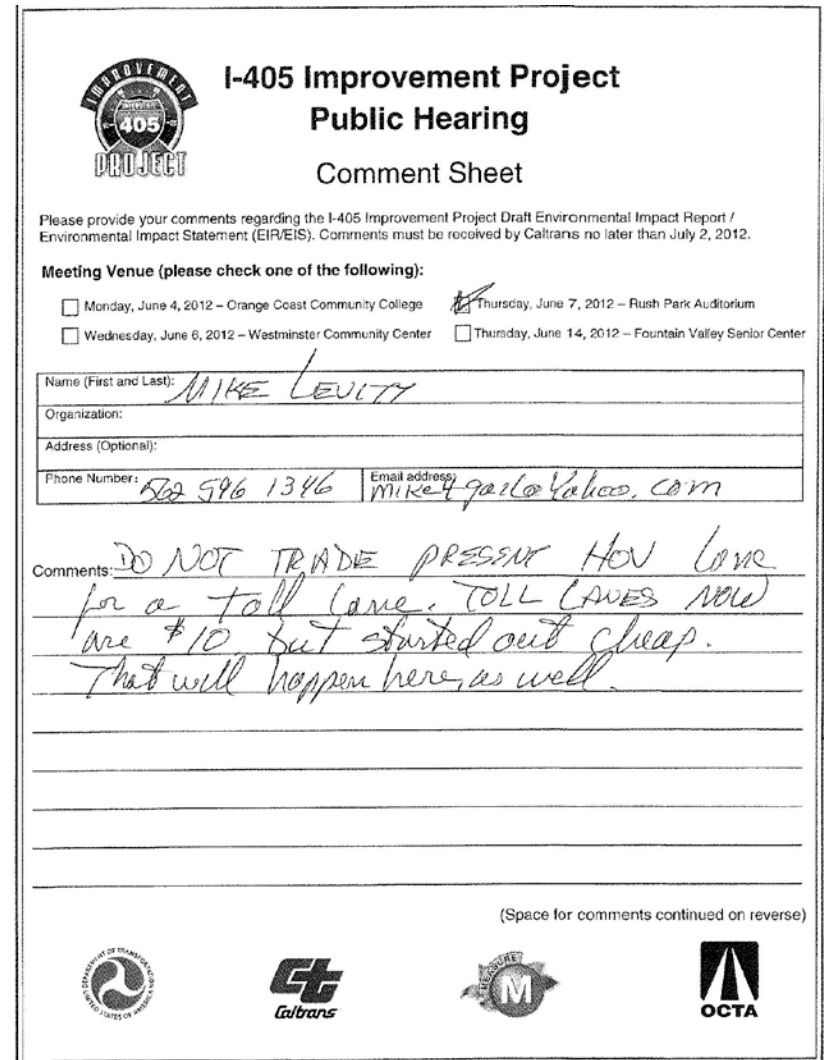 IMPROVEMENT
INTERSTATE
405
PROJECT
I-405 Improvement Project
Public Hearing
Comment Sheet
Please provide your comments regarding the I-405 Improvement Project Draft Environmental Impact Report /
Environmental Impact Statement (EIR/EIS). Comments must be received by Caltrans no later than July 2, 2012.
Meeting Venue (please check one of the following):
Monday, June 4, 2012 – Orange Coast Community College
Thursday, June 7, 2012 – Rush Park Auditorium
Wednesday, June 6, 2012 – Westminster Community Center
Thursday, June 14, 2012 – Fountain Valley Senior Center
Name (First and Last): MIKE LEVITY
Organization:
Address (Optional):
Phone Number: 562 596 1346
Email address: Yahoo.com
Comments: DO NOT TRADE PRESENT HOV Lane
for a Toll Lane. TOLL LANES NOW
are $10 but started out cheap.
That will happen here, as well.
(Space for comments continued on reverse)
DEPARTMENT OF TRANSPORTATION
UNITED STATES OF AMERICA
Caltrans
MEASURE
M
OCTA